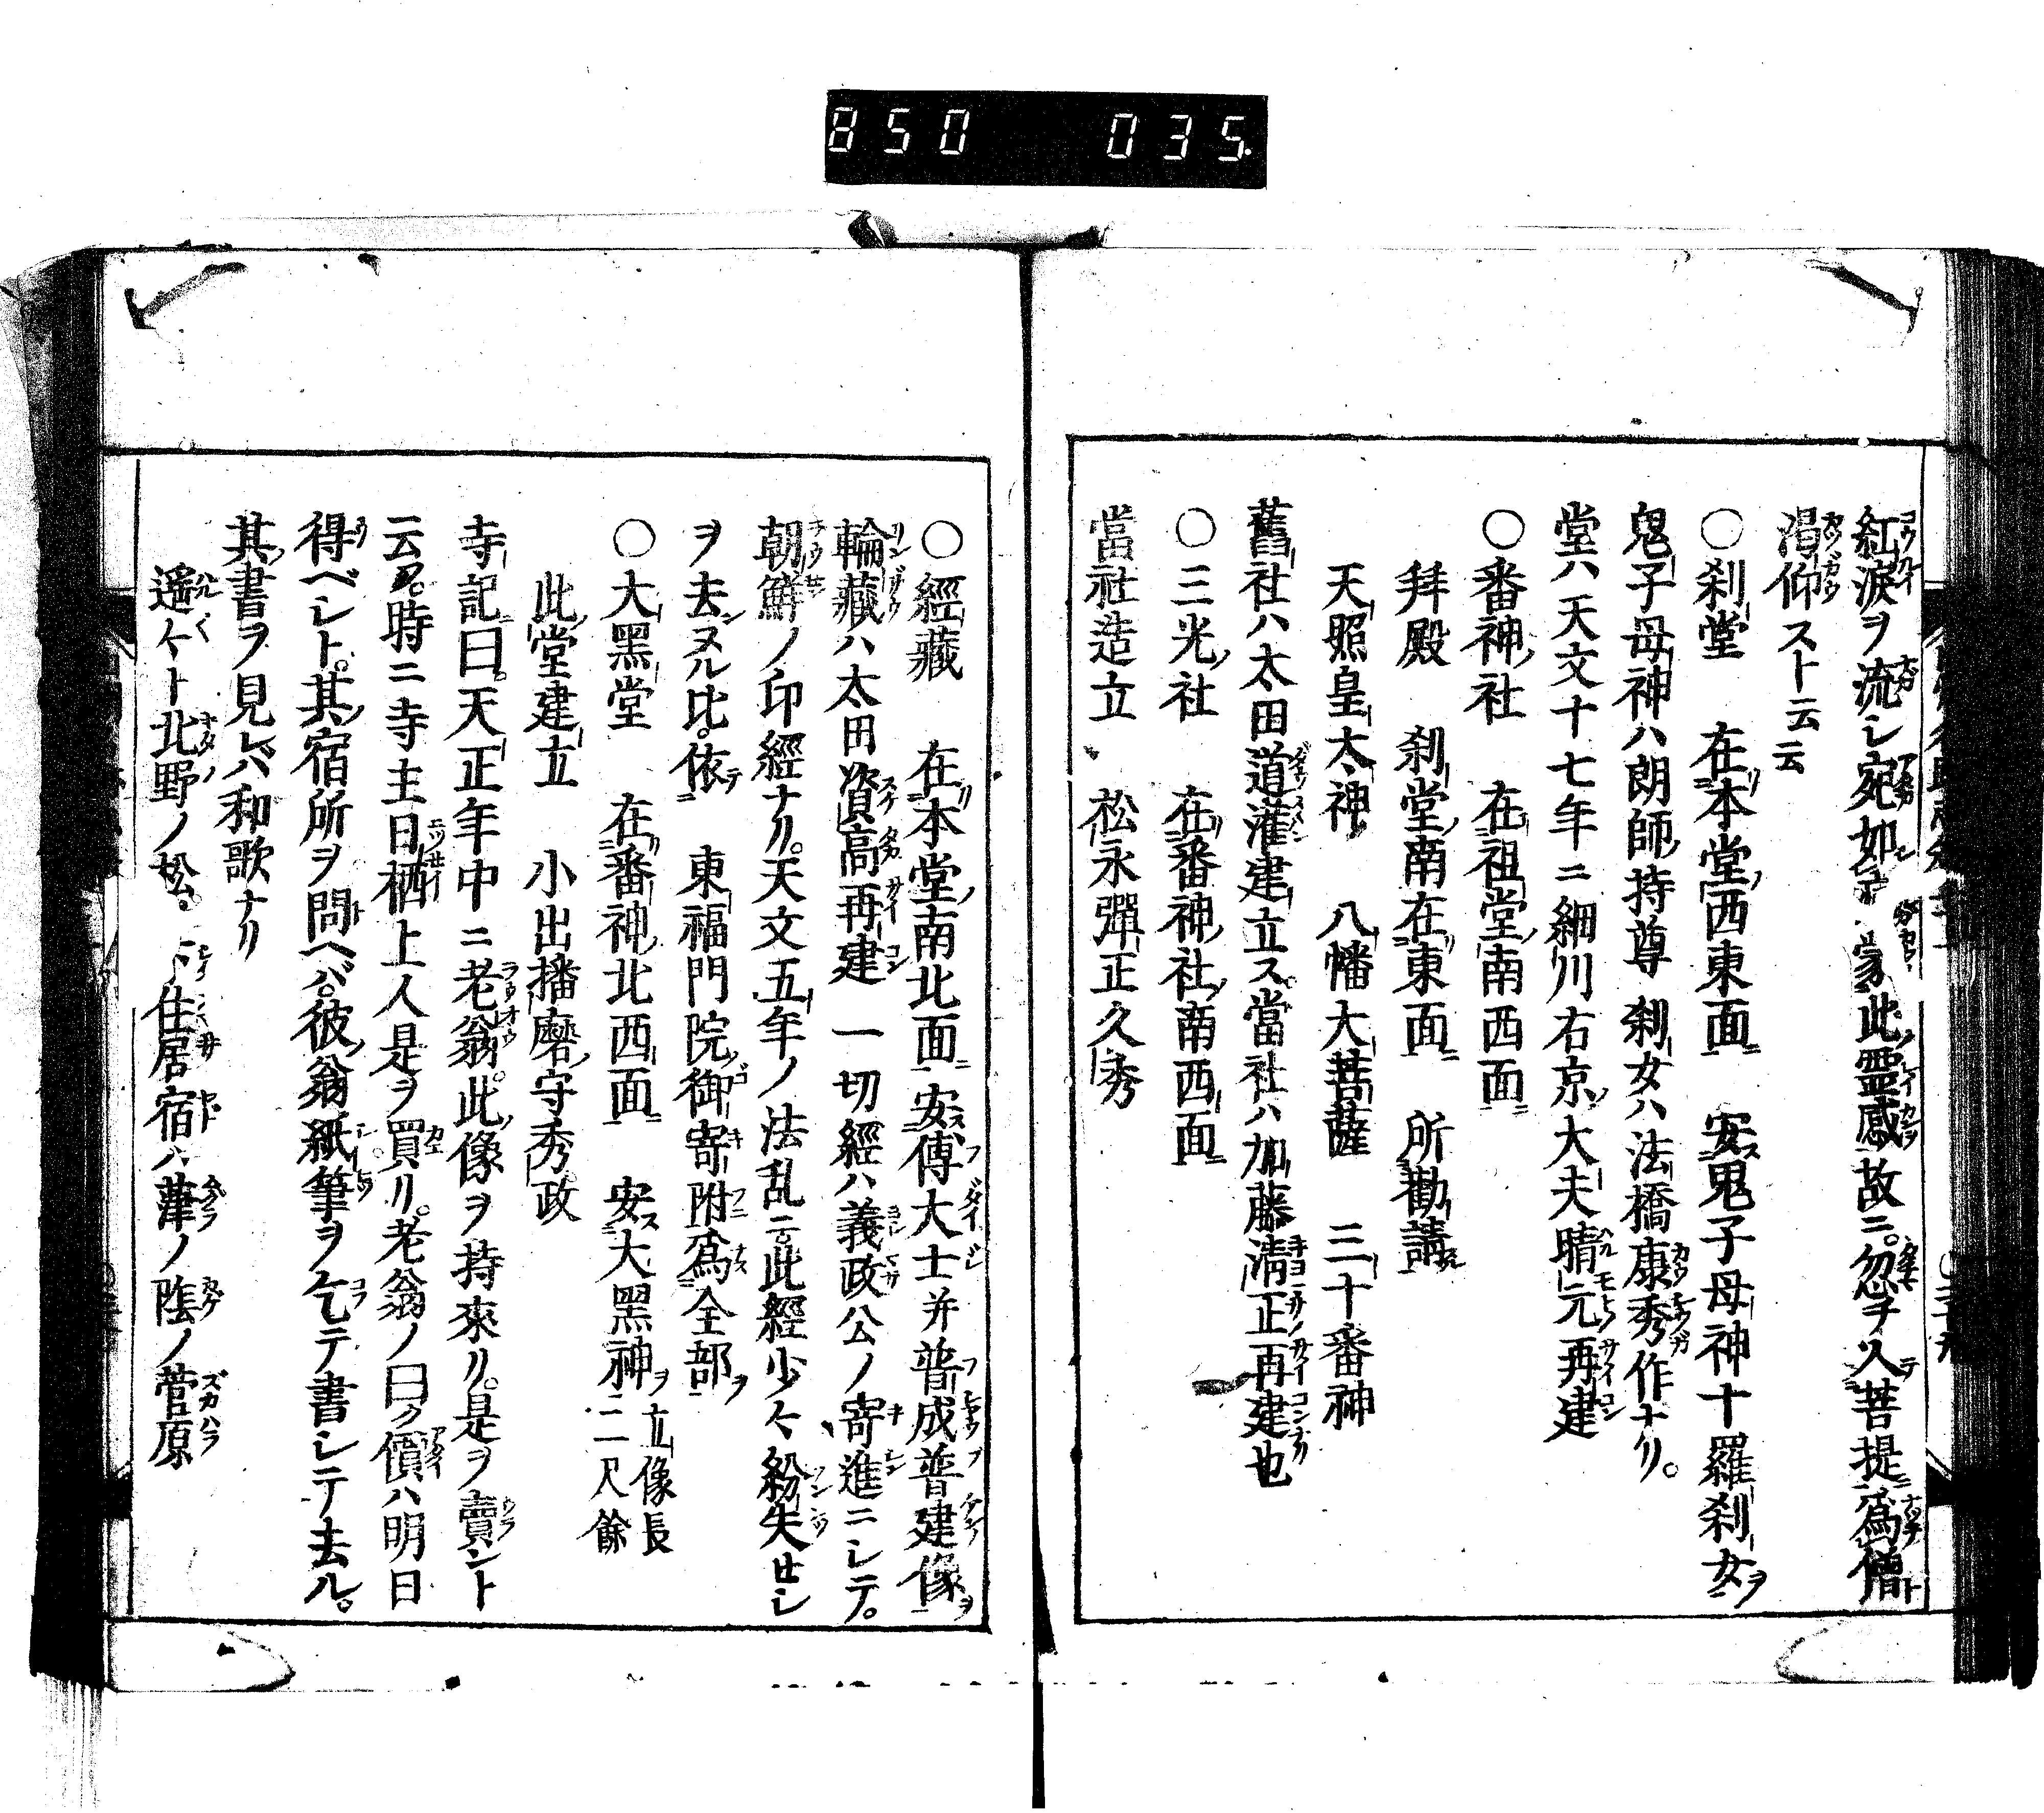 850 035
紅涙ヲ流シ宛如 蒙此霊感故ニ。忽チ入菩提為僧
渇仰スト云云
○刹堂 在本堂西東面 安鬼子母神十羅刹女ヲ
鬼子母神ハ朗師持尊 刹女ハ法橋康秀作ナリ。
堂ハ天文十七年ニ細川右京大夫晴元再建
○番神社 在祖堂南西面
拜殿 刹堂南在東面 所勸請
天照皇太神 八幡大菩薩 三十番神
舊社ハ太田道灌建立ス當社ハ加藤淸正再建也
○三光社 在番神社南西面
當社造立 松永彈正久秀
○經藏 在本堂南北面 安傅大士并普成普建像ヲ
輪藏ハ太田資高再建 一切經ハ義政公ノ寄進ニシテ。
朝鮮ノ印經ナリ。天文五年ノ法乱ニ此經少々紛失セシ
ヲ去ヌル比。依 東福門院御寄附為全部ヲ
○大黑堂 在番神北西面 安大黑神ヲ立像長二尺餘
此堂建立 小出播磨守秀政
寺記曰。天正年中ニ老翁。此像ヲ持來リ。是ヲ賣ント
云フ。時ニ寺主日栖上人是ヲ買リ。老翁ノ曰ク價ハ明日
得ベシト。其宿所ヲ問ヘバ。彼翁紙筆ヲ乞テ書シテ去ル。
其書ヲ見レバ和歌ナリ
遥々ト北野ノ松。 住居宿ハ葎ノ陰ノ菅原